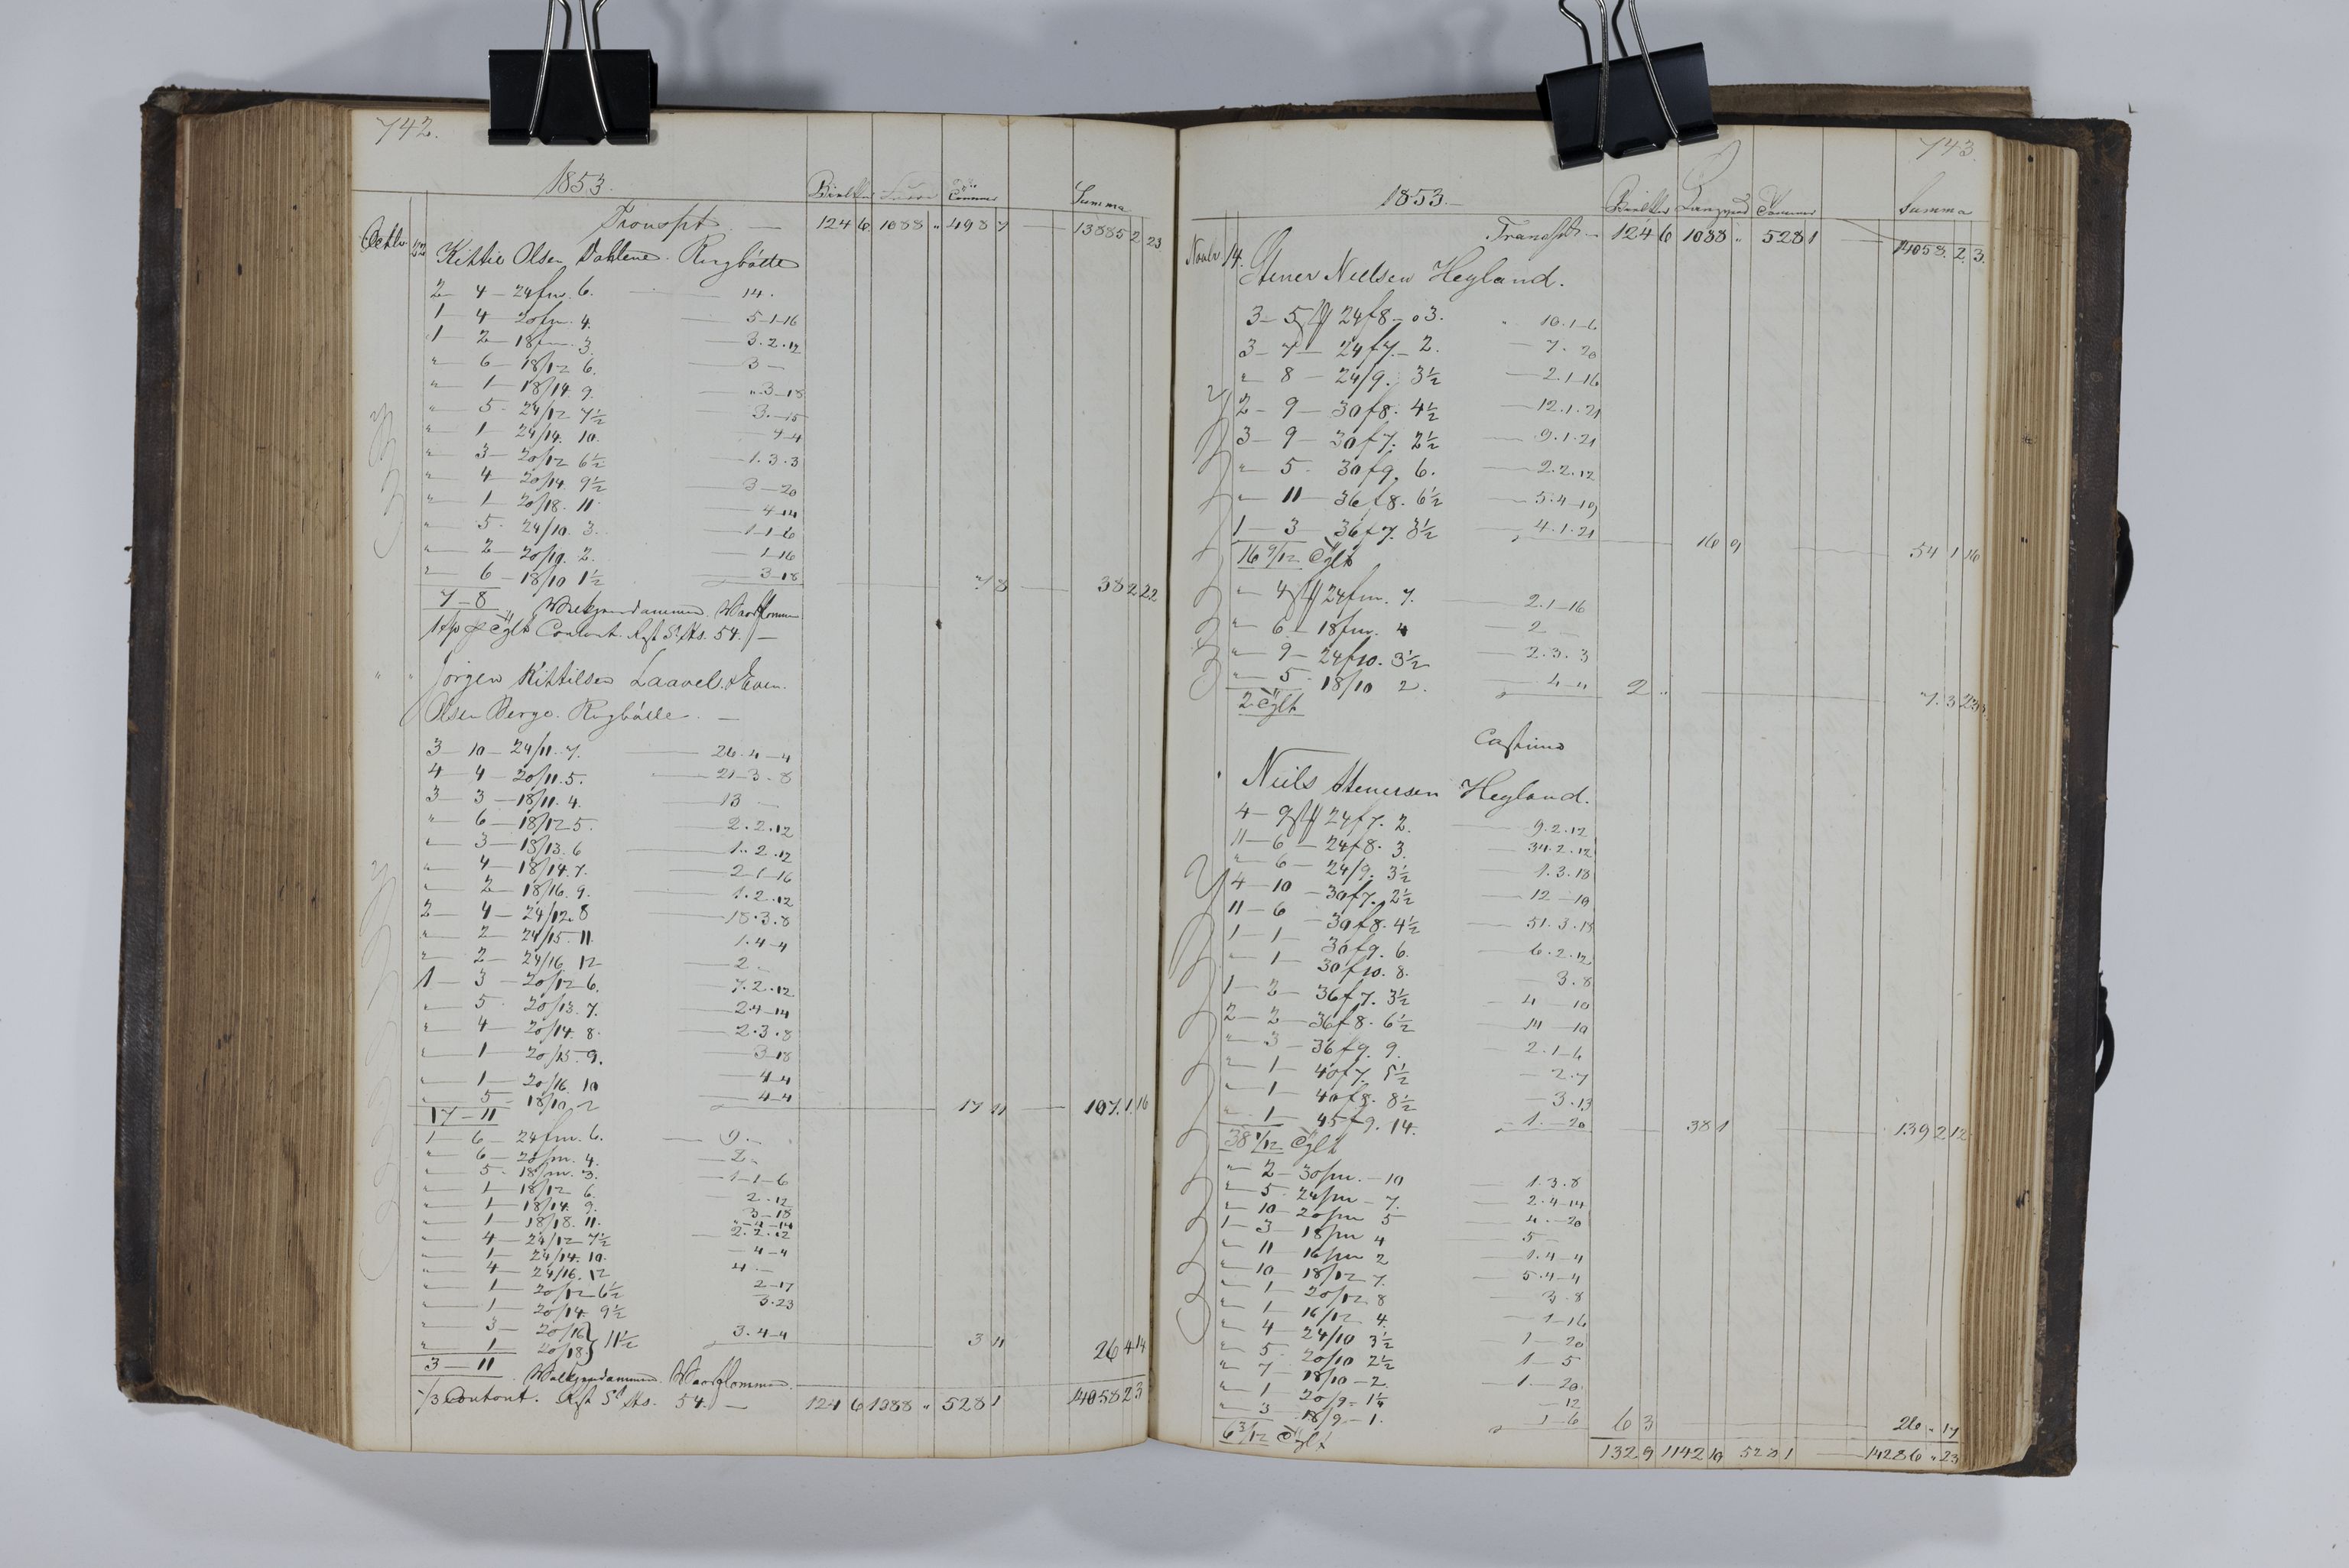 742.
1853.
Summa
Transpt. — 124 6 1088 " 498 7 — 13885 2 23
Octbr. Kittil Olsen Dahlene.
2 — 4 — 24 fm. 6. — 14.
1 — 4 — 20 fm. 4. — 5-1-16
1 — 2 — 18 fm. 3. — 3.2.12
" — 6 — 18/12 6. — 3 —
" — 1 — 18/14. 9. — ".3-18
" — 5 - 24/12 7½ — 3.-15
" — 1 — 24/14. 10. — 4-4
" — 3 — 20/12 6½ — 1.3.3
" — 4 — 20/14. 9½ — 3-20
" — 1 — 20/18. 11. — 4-14
" — 5 - 24/10. 3. — 1-1-6
" — 2 — 20/10. 2. — 1-16
" — 6 — 18/10 1½ — 3-18
7 — 8 7 8 — 38 2 22
Contant. 54. —
" " Jørgen Kittilsen Laavel. & Even
Olsen Berge. —
3 — 10 — 24/11. 7. — 26.4-4
4 — 4 — 20/11. 5. — 21-3.8
3 — 3 — 18/11. 4. — 13 —
" — 6 — 18/12 5. — 2.2.12
" — 3 — 18/13. 6 — 1.2.12
" — 4 — 18/14. 7. — 2-1-16
" — 2 — 18/16. 9. — 1.2.12
2 — 4 — 24/12. 8 — 18.3.8
" — 2 — 24/15. 11. — 1.4-4
" — 2 — 24/16 12 — 2 -
1 — 3 — 20/12 6. — 7.2.12
" — 5 - 20/13. 7. — 2-4-14
" — 4 — 20/14. 8. — 2.3.8
" — 1 — 20/15. 9. — 3-18
" — 1 — 20/16. 10 — 4-4
" — 5 - 18/10. 2 — 4-4
17 — 11 17 11 — 107. 1. 16
1 — 6 — 24 fm. 6. — 9.-
" — 6 — 20 fm. 4. — 2 -
" — 5 - 18 fm. 3. — 1-1-6
" — 1 — 18/12 6. — 2.12
" — 1 — 18/14. 9. — 3-18
" — 1 — 18/18. 11. — "-4-14
" — 4 — 24/12 7½ — 2.2.12
" — 1 — 24/14. 10. — 4-4
" — 4 — 24/16. 12 — 4 -
" — 1 — 20/12 6½ — 2-17
" — 1 — 20/14 9½ — 3.23
" — 3 — 20/16 } 11½ — 3.4-4
" — 1 — 20/18 }
3 — 11 3 11 26 4 14
Contont. 54. — 124 6 1088 " 528 1 14058 2 3
743.
1853.—
Summa
Transpt. — 124 6 1088 " 528 1 — 14058. 2. 3.
Novbr. 14. Stener Nielsen Heyland.
3 — 5 24 f 8 — 3. 10.1-6
3 — 7 — 24 f 7 — 2. — 7. 20
" 8 — 24/9. 3½ — 2.1-16
2 — 9 — 30 f 8. 4½ — 12.1.21
3 — 9 — 30 f 7. 2½ — 9.1.21
" 5 - 30 f 9. 6. — 2.2.12
" — 11 — 36 f 8. 6½ — 5.4-19
1 — 3 — 36 f 7. 3½ — 4.1.21
16 9/12 16 9 54 1 16
" — 4 24 fm. 7. — 2.1-16
" — 6 — 18 fm. 4 — 2 —
" — 9 — 24 f 10. 3½ — 2.3.3
" — 5 - 18/10 2. — 4-4
2 2 " 7. 3 23
Niels Stenersen Heyland.
4 — 9 24 f 7. 2. — 9.2.12
11 — 6 — 24 f 8. 3. — 34.2.12
" — 6 — 24/9. 3½ — 1.3.18
4 — 10 — 30 f 7. 2½ — 12 - 10
11 — 6 — 30 f 8. 4½ — 51.3.15
1 — 1 — 30 f 9. 6. — 6.2.12
" — 1 — 30 f 10. 8. — 3.8
1 — 2 — 36 f 7. 3½ — 4 — 10
2 — 2 — 36 f 8. 6½ — 14 — 10
" — 3 — 36 f 9. 9. — 2.1-6
" — 1 — 40 f 7. 5½ — 2.7
" — 1 — 40 f 8. 8½ — 3.13
" — 1 — 45 f 9. 14. — 1. — 20
38 1/12 38 1 139 2 12
" — 2 — 30 fm. — 10 — 1.3.8
" — 5 - 24 fm — 7. — 2.4-14
" — 10 — 20 fm 5 — 4. - 20
1 — 3 — 18 fm 4 — 5 —
" — 11 — 16 fm 2 — 1.4-4
" — 10 — 18/12 7. — 5.4-4
" — 1 — 20/12 8 — 3.8
" — 1 — 16/12 4. — 1-16
" — 4 — 24/10 3½ — 1 — 20
" — 5 - 20/10 2½ — 1 — 5
" — 7 — 18/10 — 2. — 1. — 20.
" — 1 — 20/9 - 1¼ — 12
" — 3 — 18/9 — 1. 1-6
6 3/12 6 3 26 " 17
132 9 1142 10 528 1 — 14286 " 23